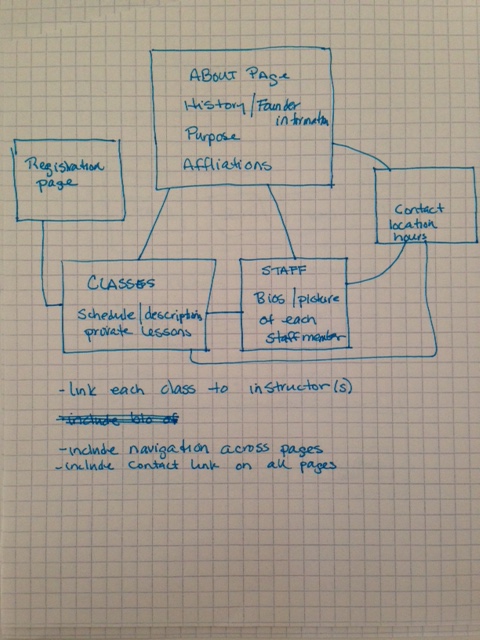 ABOUT PAGE
History/Founder
information
Purpose
Affliations
Registration
page
Contact
location
hours
CLASSES
Schedule/descriptions
private lessons
STAFF
Bios/picture
of each
staff member
-link each class to instructor(s)
-include bio of
-include navigation across pages
-include contact link on all pages